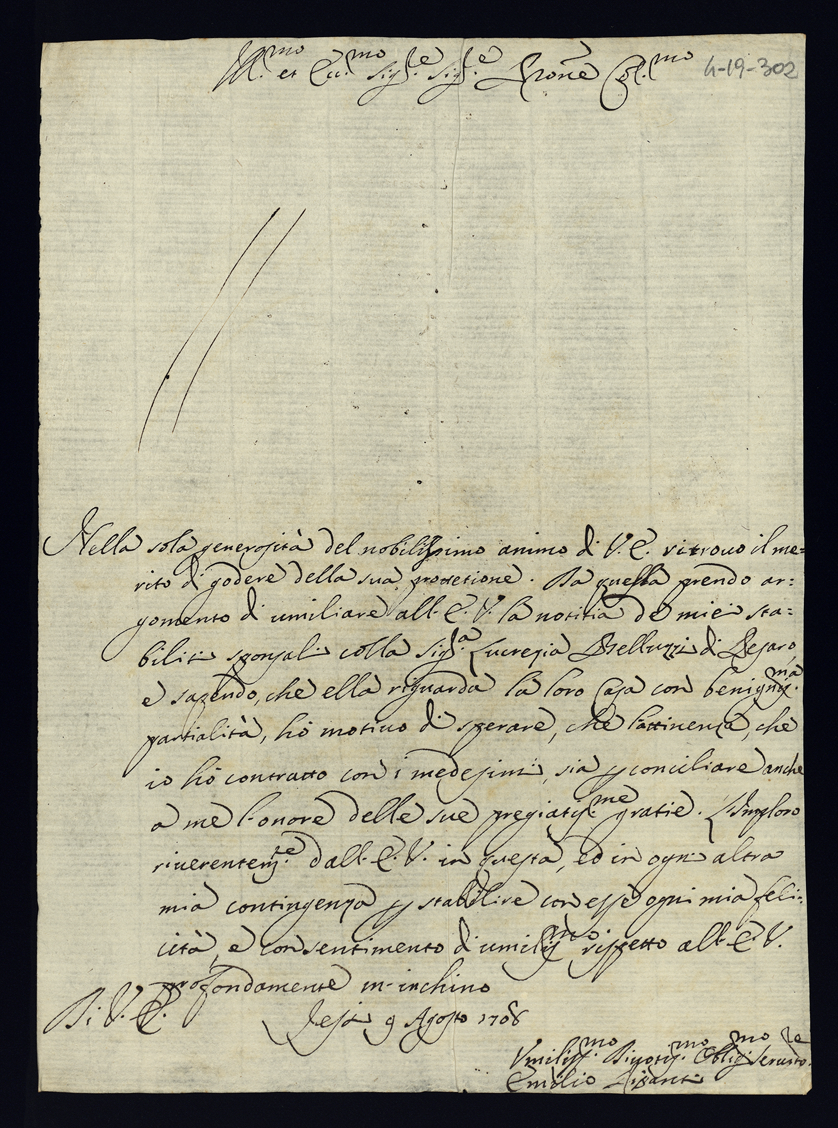 Ill.mo et Ecc.mo Sig.re Sig.re Prone Col.mo
4-19-302
Nella sola generosità del nobilissimo animo di V.E. ritrovo il me=
rito di godere della sua protetione. Da questa prendo ar=
gomento di umiliare all'E.V. la notitia de miei sta=
biliti sponsali colla Sig.ra Lucrezia Belluzzi di Pesaro,
e sapendo, che ella riguarda la loro Casa con benignis.ma
partialità, hò motivo di sperare, che l'attinenza, che
io hò contratto con i medesimi, sia p conciliare anche
a me l'onore delle sue pregiatis.me gratie. L'imploro
riverentem.te dall'E.V. in questa, ed in ogni altra
mia contingenza p stabilire con esse ogni mia feli=
cità, e con sentimento di umilis.mo rispetto all'E.V.
profondamente m'inchino
Di V.E. Jesi 9 Agosto 1708
Umiliss.mo Divotis.mo Oblig.mo Serv.re
Emilio